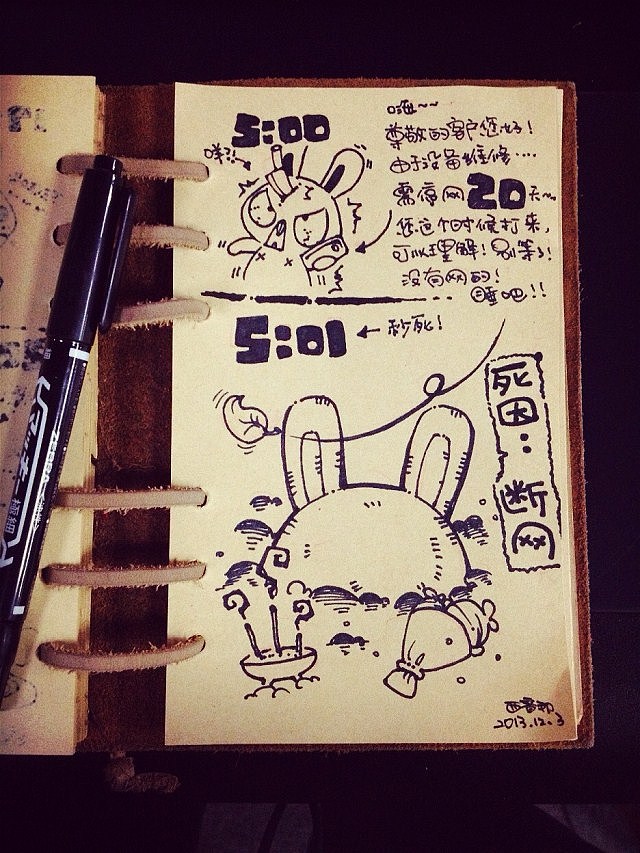 5:00
咩?!
嗨~~
尊敬的客户您好!
由于没备维修....
需停网20天~
您这个时候打来,
可以理解!别等了!
没有网的!
睡吧!!
5:01 ← 秒死!
死因:断网
2013.12.3
ZEBRA